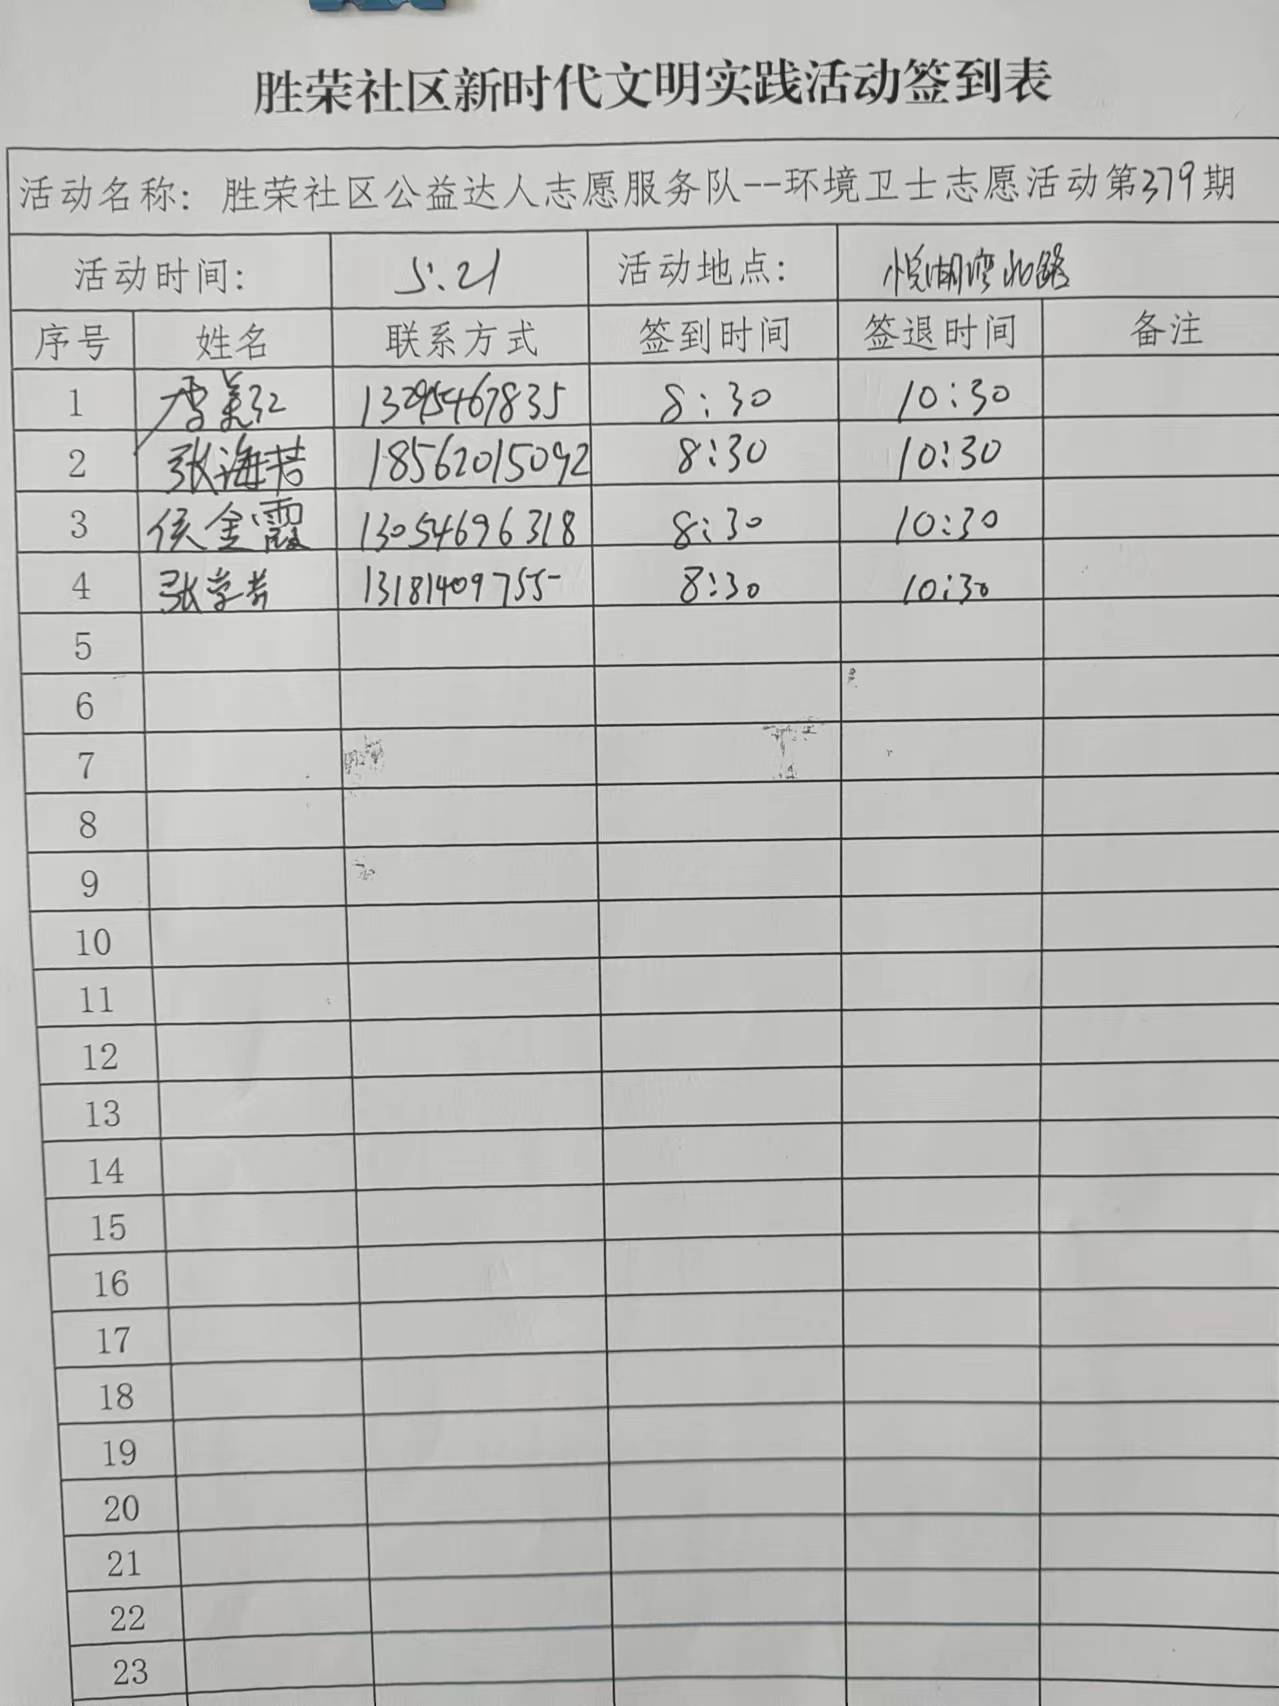 胜荣社区新时代文明实践活动签到表
活动名称：胜荣社区公益达人志愿服务队--环境卫士志愿活动第379期
活动时间： 5.21 活动地点： 悦湖湾北路
序号 姓名 联系方式 签到时间 签退时间 备注
1 李美红 13295467835 8:30 10:30
2 张海芳 18562015092 8:30 10:30
3 侯金霞 13054696318 8:30 10:30
4 张学芳 13181409755 8:30 10:30
5
6
7
8
9
10
11
12
13
14
15
16
17
18
19
20
21
22
23